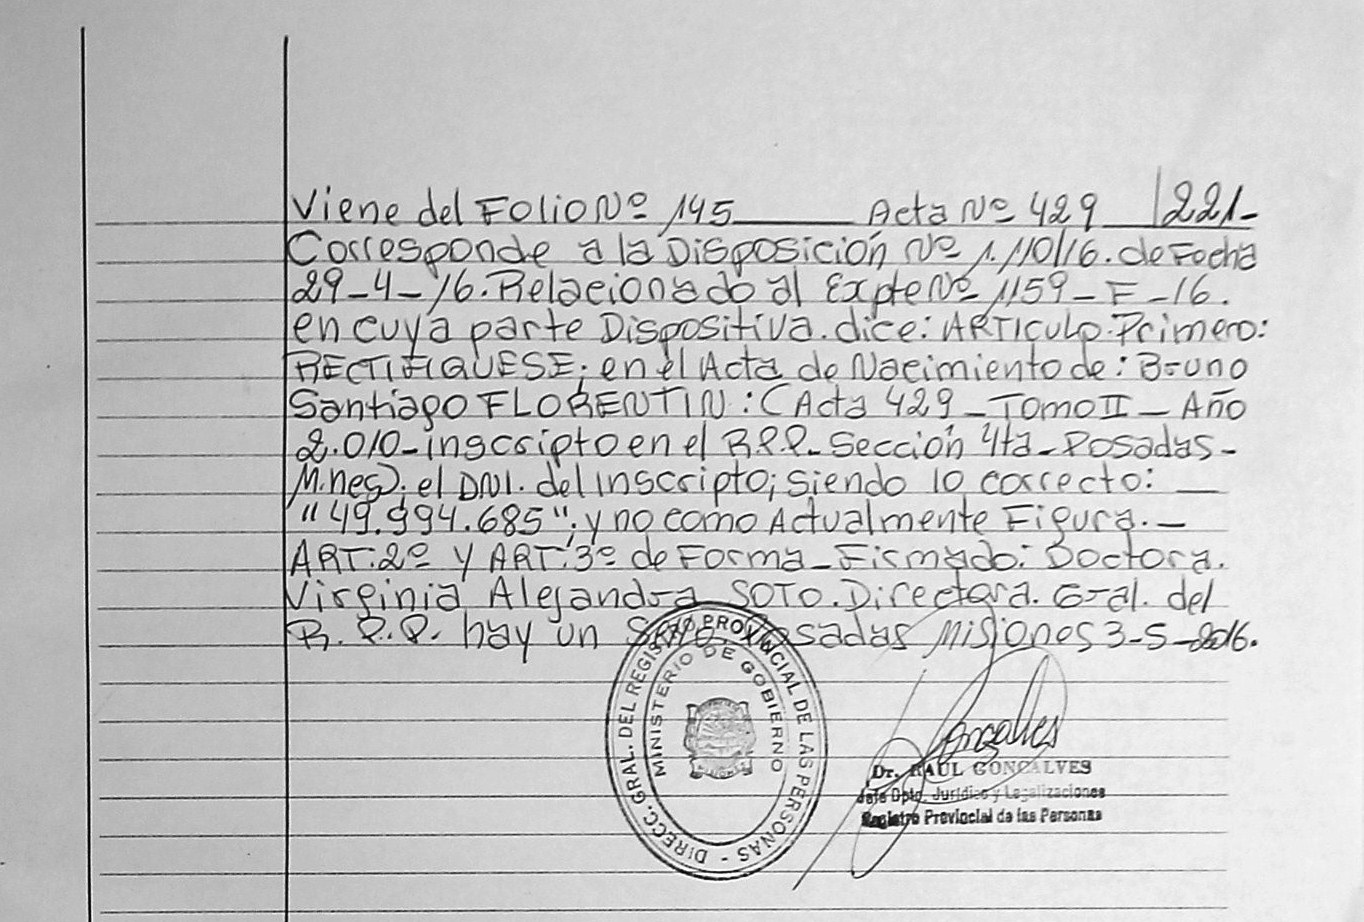 Viene del Folio Nº 145 Acta Nº 429 221-
Corresponde a la Disposición Nº 1.110/16. de Fecha
29-4-16. Relacionado al Expte Nº 1159-F-16.
en cuya parte Dispositiva. dice: ARTICULO. Primero:
RECTIFIQUESE; en el Acta de Nacimiento de: Bruno
Santiago FLORENTIN: (Acta 429 - Tomo II - Año
2.010 - inscripto en el R.P.P. Sección 4ta - Posadas -
Mnes); el DNI. del inscripto; siendo lo correcto: —
"49.994.685"; y no como Actualmente Figura. —
ART: 2º y ART: 3º de Forma - Firmado: Doctora.
Virginia Alejandra SOTO. Directora. Gral. del
R.P.P. hay un Sello. Posadas Misiones 3-5-2016.
DIRECC. GRAL. DEL REGISTRO PROVINCIAL DE LAS PERSONAS -
MINISTERIO DE GOBIERNO
Dr. RAUL GONCALVES
Jefe Dpto. Jurídico y Legalizaciones
Registro Provincial de las Personas